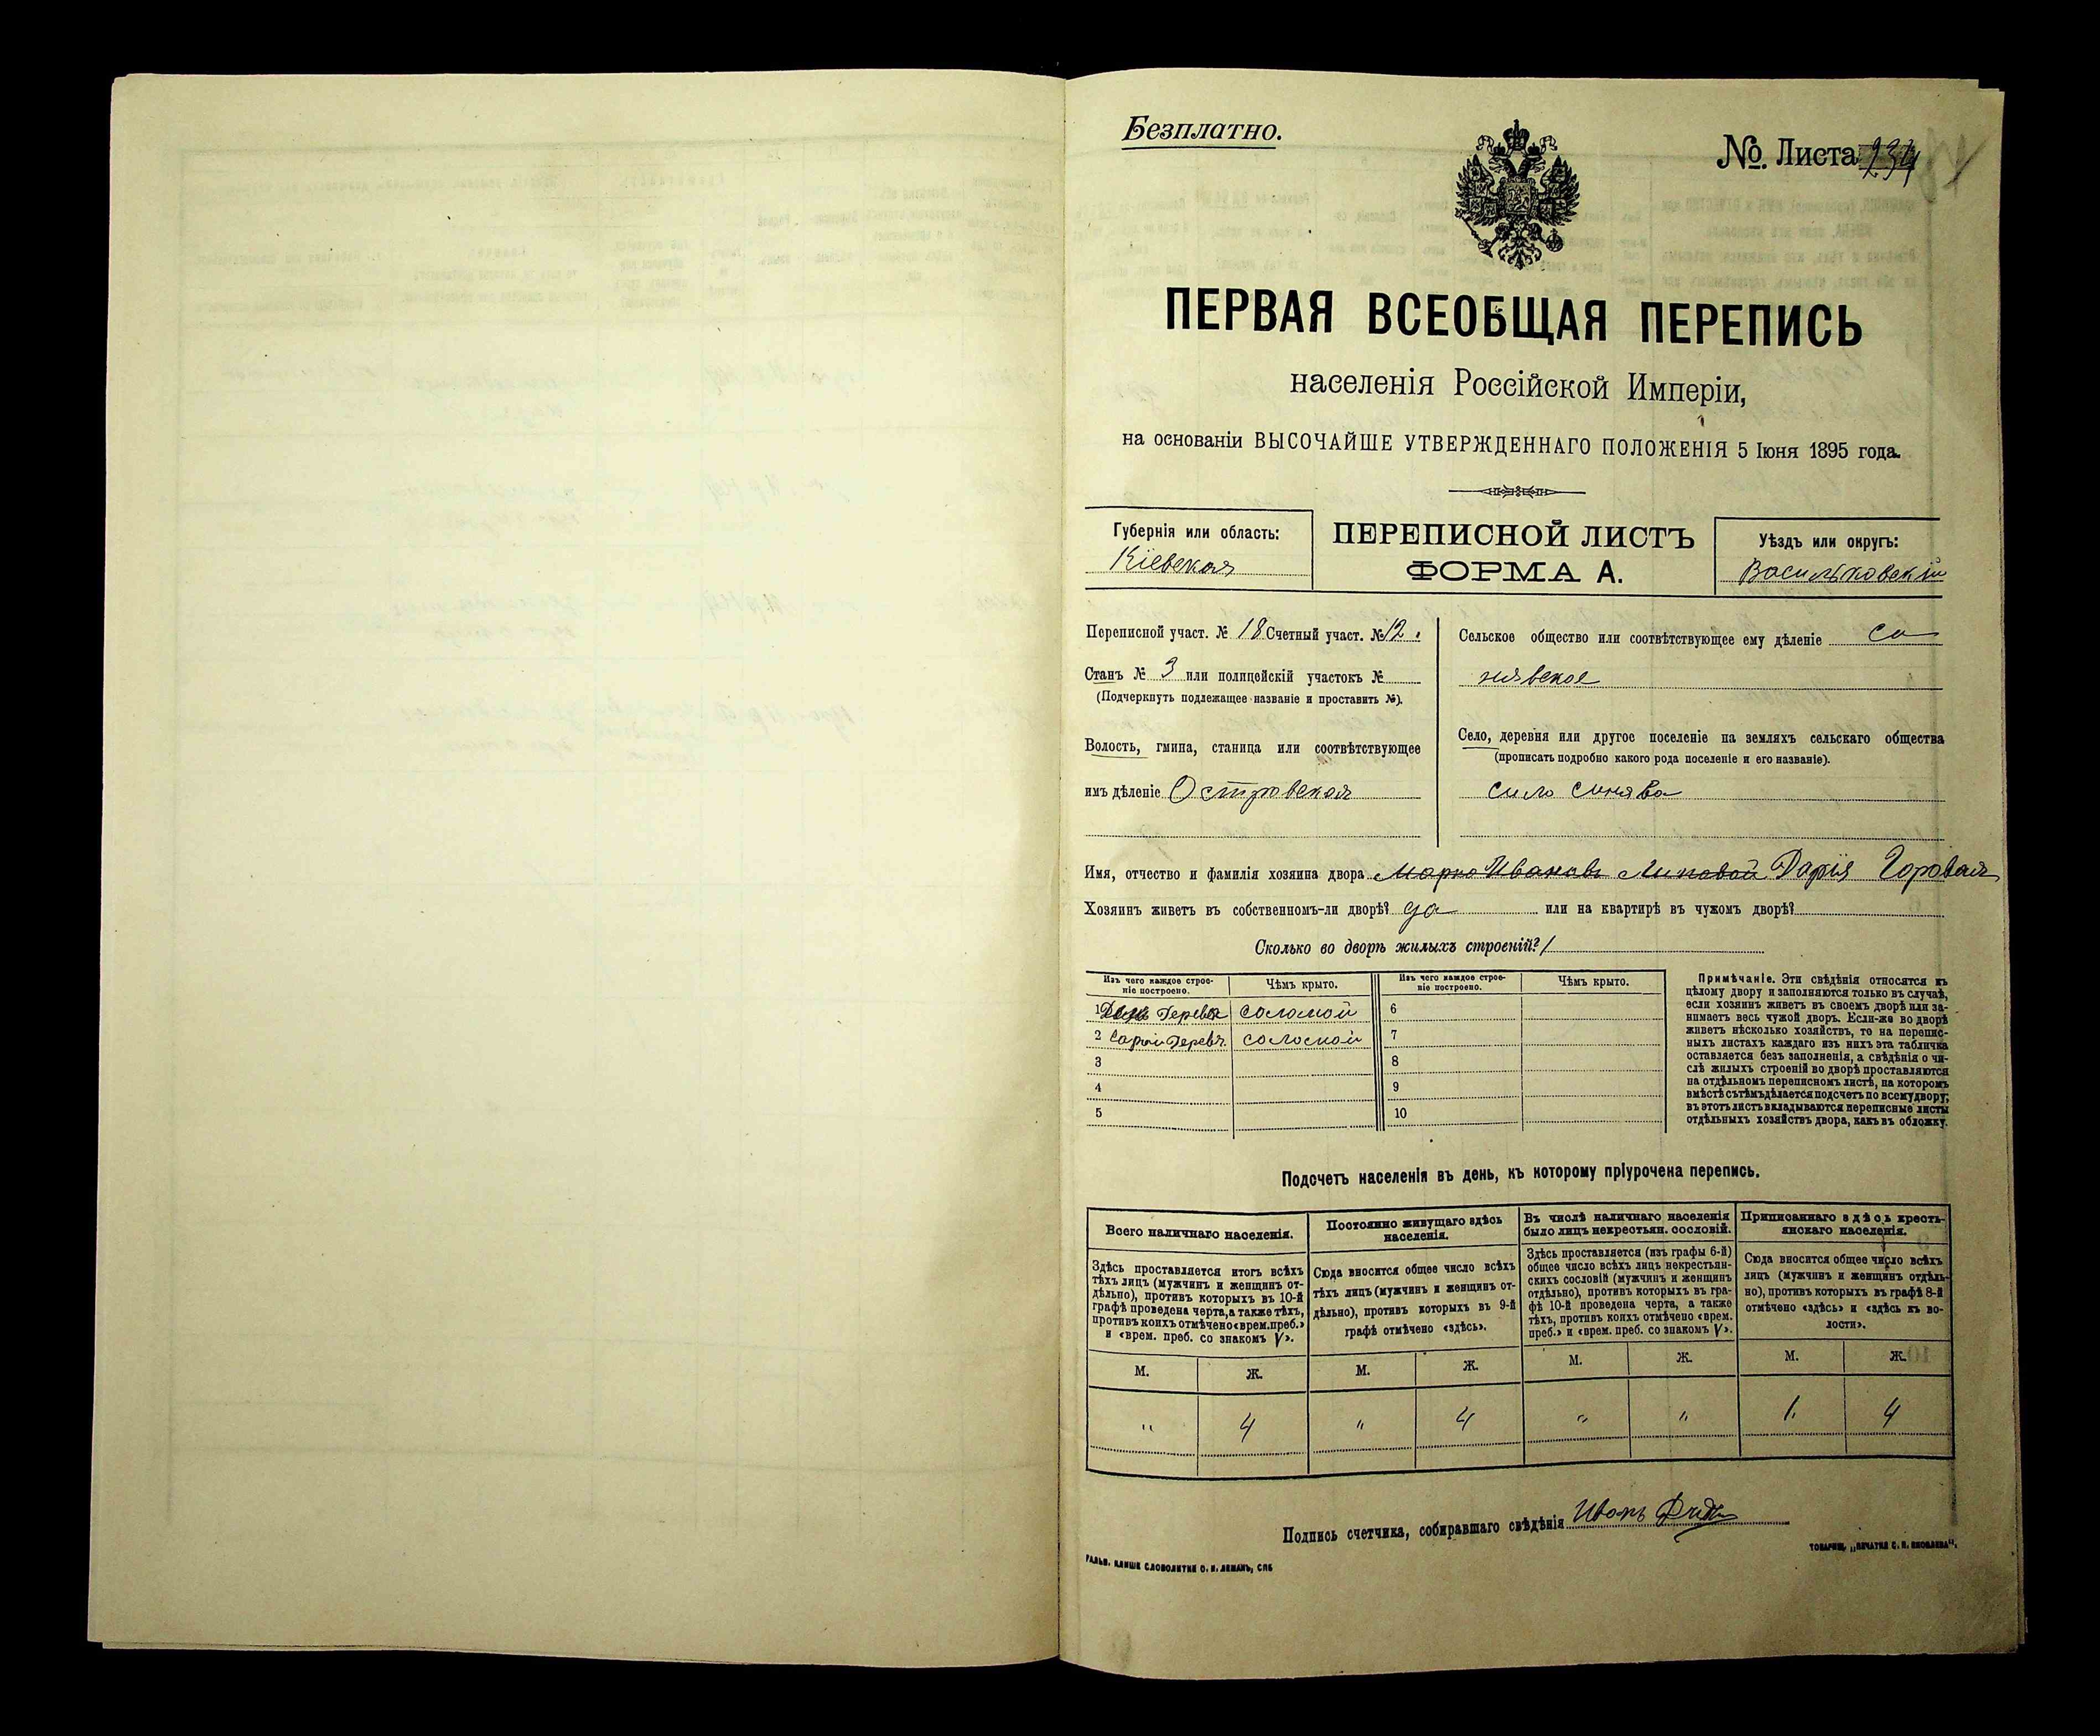 Безплатно.
№. Листа
ПЕРВАЯ ВСЕОБЩАЯ ПЕРЕПИСЬ
населенія Россійской Имперіи,
на основаніи ВЫСОЧАЙШЕ УТВЕРЖДЕННАГО ПОЛОЖЕНІЯ 5 Іюня 1895 года.
Губернія или область:
Кіевская
ПЕРЕПИСНОЙ ЛИСТЪ
ФОРМА А.
Уѣздъ или округъ:
Васильковскій
Переписной участ. № 18 Счетный участ. № 12.
Станъ № 3 или полицейскій участокъ №
(Подчеркнуть подлежащее названіе и проставить №).
Волость, гмина, станица или соотвѣтствующее
имъ дѣленіе Островская
Сельское общество или соотвѣтствующее ему дѣленіе Си
нявское
Село, деревня или другое поселеніе на земляхъ сельскаго общества
(прописать подробно какого рода поселеніе и его названіе).
село Синява
Имя, отчество и фамилія хозяина двора Марко Ивановъ Липовой Дарія Горовая
Хозяинъ живетъ въ собственномъ-ли дворѣ? да или на квартирѣ въ чужомъ дворѣ?
Сколько во дворѣ жилыхъ строеній? 1
Изъ чего каждое строе-
ніе построено.
Чѣмъ крыто.
Изъ чего каждое строе-
ніе построено.
Чѣмъ крыто.
1 соломой 6
2 соломой 7
3 8
4 9
5 10
Примѣчаніе. Эти свѣдѣнія относятся къ
цѣлому двору и заполняются только въ случаѣ,
если хозяинъ живетъ въ своемъ дворѣ или за-
нимаетъ весь чужой дворъ. Если-же во дворѣ
живетъ нѣсколько хозяйствъ, то на перепис-
ныхъ листахъ каждаго изъ нихъ эта табличка
оставляется безъ заполненія, а свѣдѣнія о чи-
слѣ жилыхъ строеній во дворѣ проставляются
на отдѣльномъ переписномъ листѣ, на которомъ
вмѣстѣ съ тѣмъ дѣлается подсчетъ по всему двору;
въ этотъ листъ вкладываются переписные листы
отдѣльныхъ хозяйствъ двора, какъ въ обложку.
Подсчетъ населенія въ день, къ которому пріурочена перепись.
Всего наличнаго населенія.
Здѣсь проставляется итогъ всѣхъ
тѣхъ лицъ (мужчинъ и женщинъ от-
дѣльно), противъ которыхъ въ 10-й
графѣ проведена черта, а также тѣхъ,
противъ коихъ отмѣчено «врем. преб.»
и «врем. преб. со знакомъ V».
Постоянно живущаго здѣсь
населенія.
Сюда вносится общее число всѣхъ
тѣхъ лицъ (мужчинъ и женщинъ от-
дѣльно), противъ которыхъ въ 9-й
графѣ отмѣчено «здѣсь».
Въ числѣ наличнаго населенія
было лицъ некрестьян. сословій.
Здѣсь проставляется (изъ графы 6-й)
общее число всѣхъ лицъ некрестьян-
скихъ сословій (мужчинъ и женщинъ
отдѣльно), противъ которыхъ въ гра-
фѣ 10-й проведена черта, а также
тѣхъ, противъ коихъ отмѣчено «врем.
преб.» и «врем. преб. со знакомъ V».
Приписаннаго здѣсь кресть-
янскаго населенія.
Сюда вносится общее число всѣхъ
лицъ (мужчинъ и женщинъ отдѣль-
но), противъ которыхъ въ графѣ 8-й
отмѣчено «здѣсь» и «здѣсь къ во-
лости».
М. Ж. М. Ж. М. Ж. М. Ж.
" 4 " 4 " " 1. 4
Подпись счетчика, собиравшаго свѣдѣнія